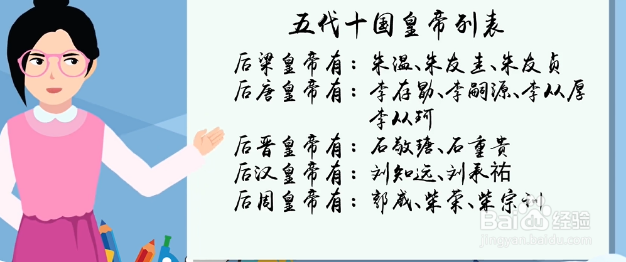 五代十国皇帝列表
后梁皇帝有：朱温、朱友圭、朱友贞
后唐皇帝有：李存勖、李嗣源、李从厚
李从珂
后晋皇帝有：石敬瑭、石重贵
后汉皇帝有：刘知远、刘承祐
后周皇帝有：郭威、柴荣、柴宗训
Baidu经验
jingyan.baidu.com